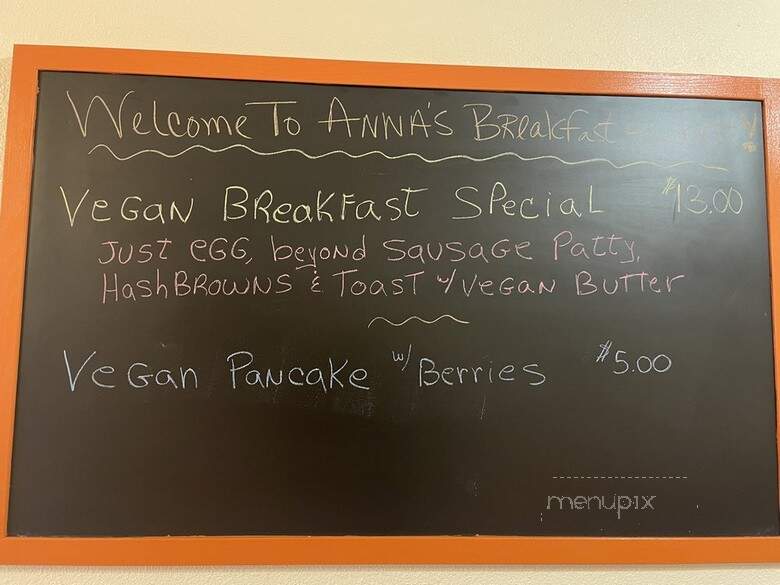 Welcome To ANNA'S Breakfast
Vegan Breakfast Special $13.00
Just egg, beyond sausage Patty,
HashBrowns & Toast w/ vegan Butter
Vegan Pancake w/ Berries $5.00
menupix